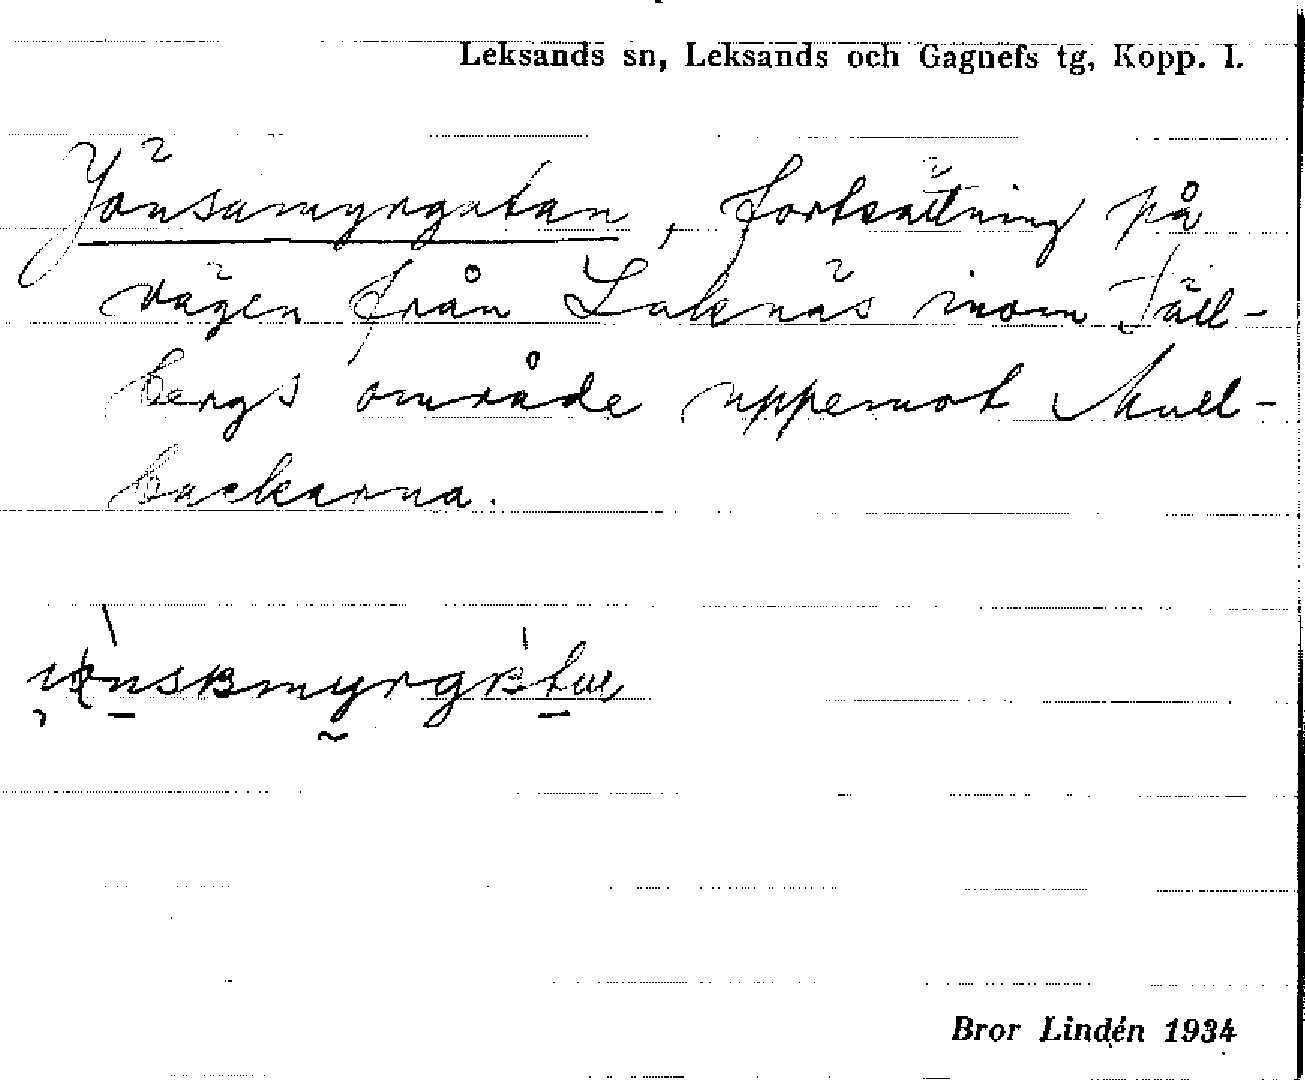 Leksands sn, Leksands och Gagnefs tg, Kopp. l.
Jönsamyrgatan, fortsättning på
vägen från Laknäs inom Täll-
bergs område uppemot
backarna.
Bror Lindén 1934